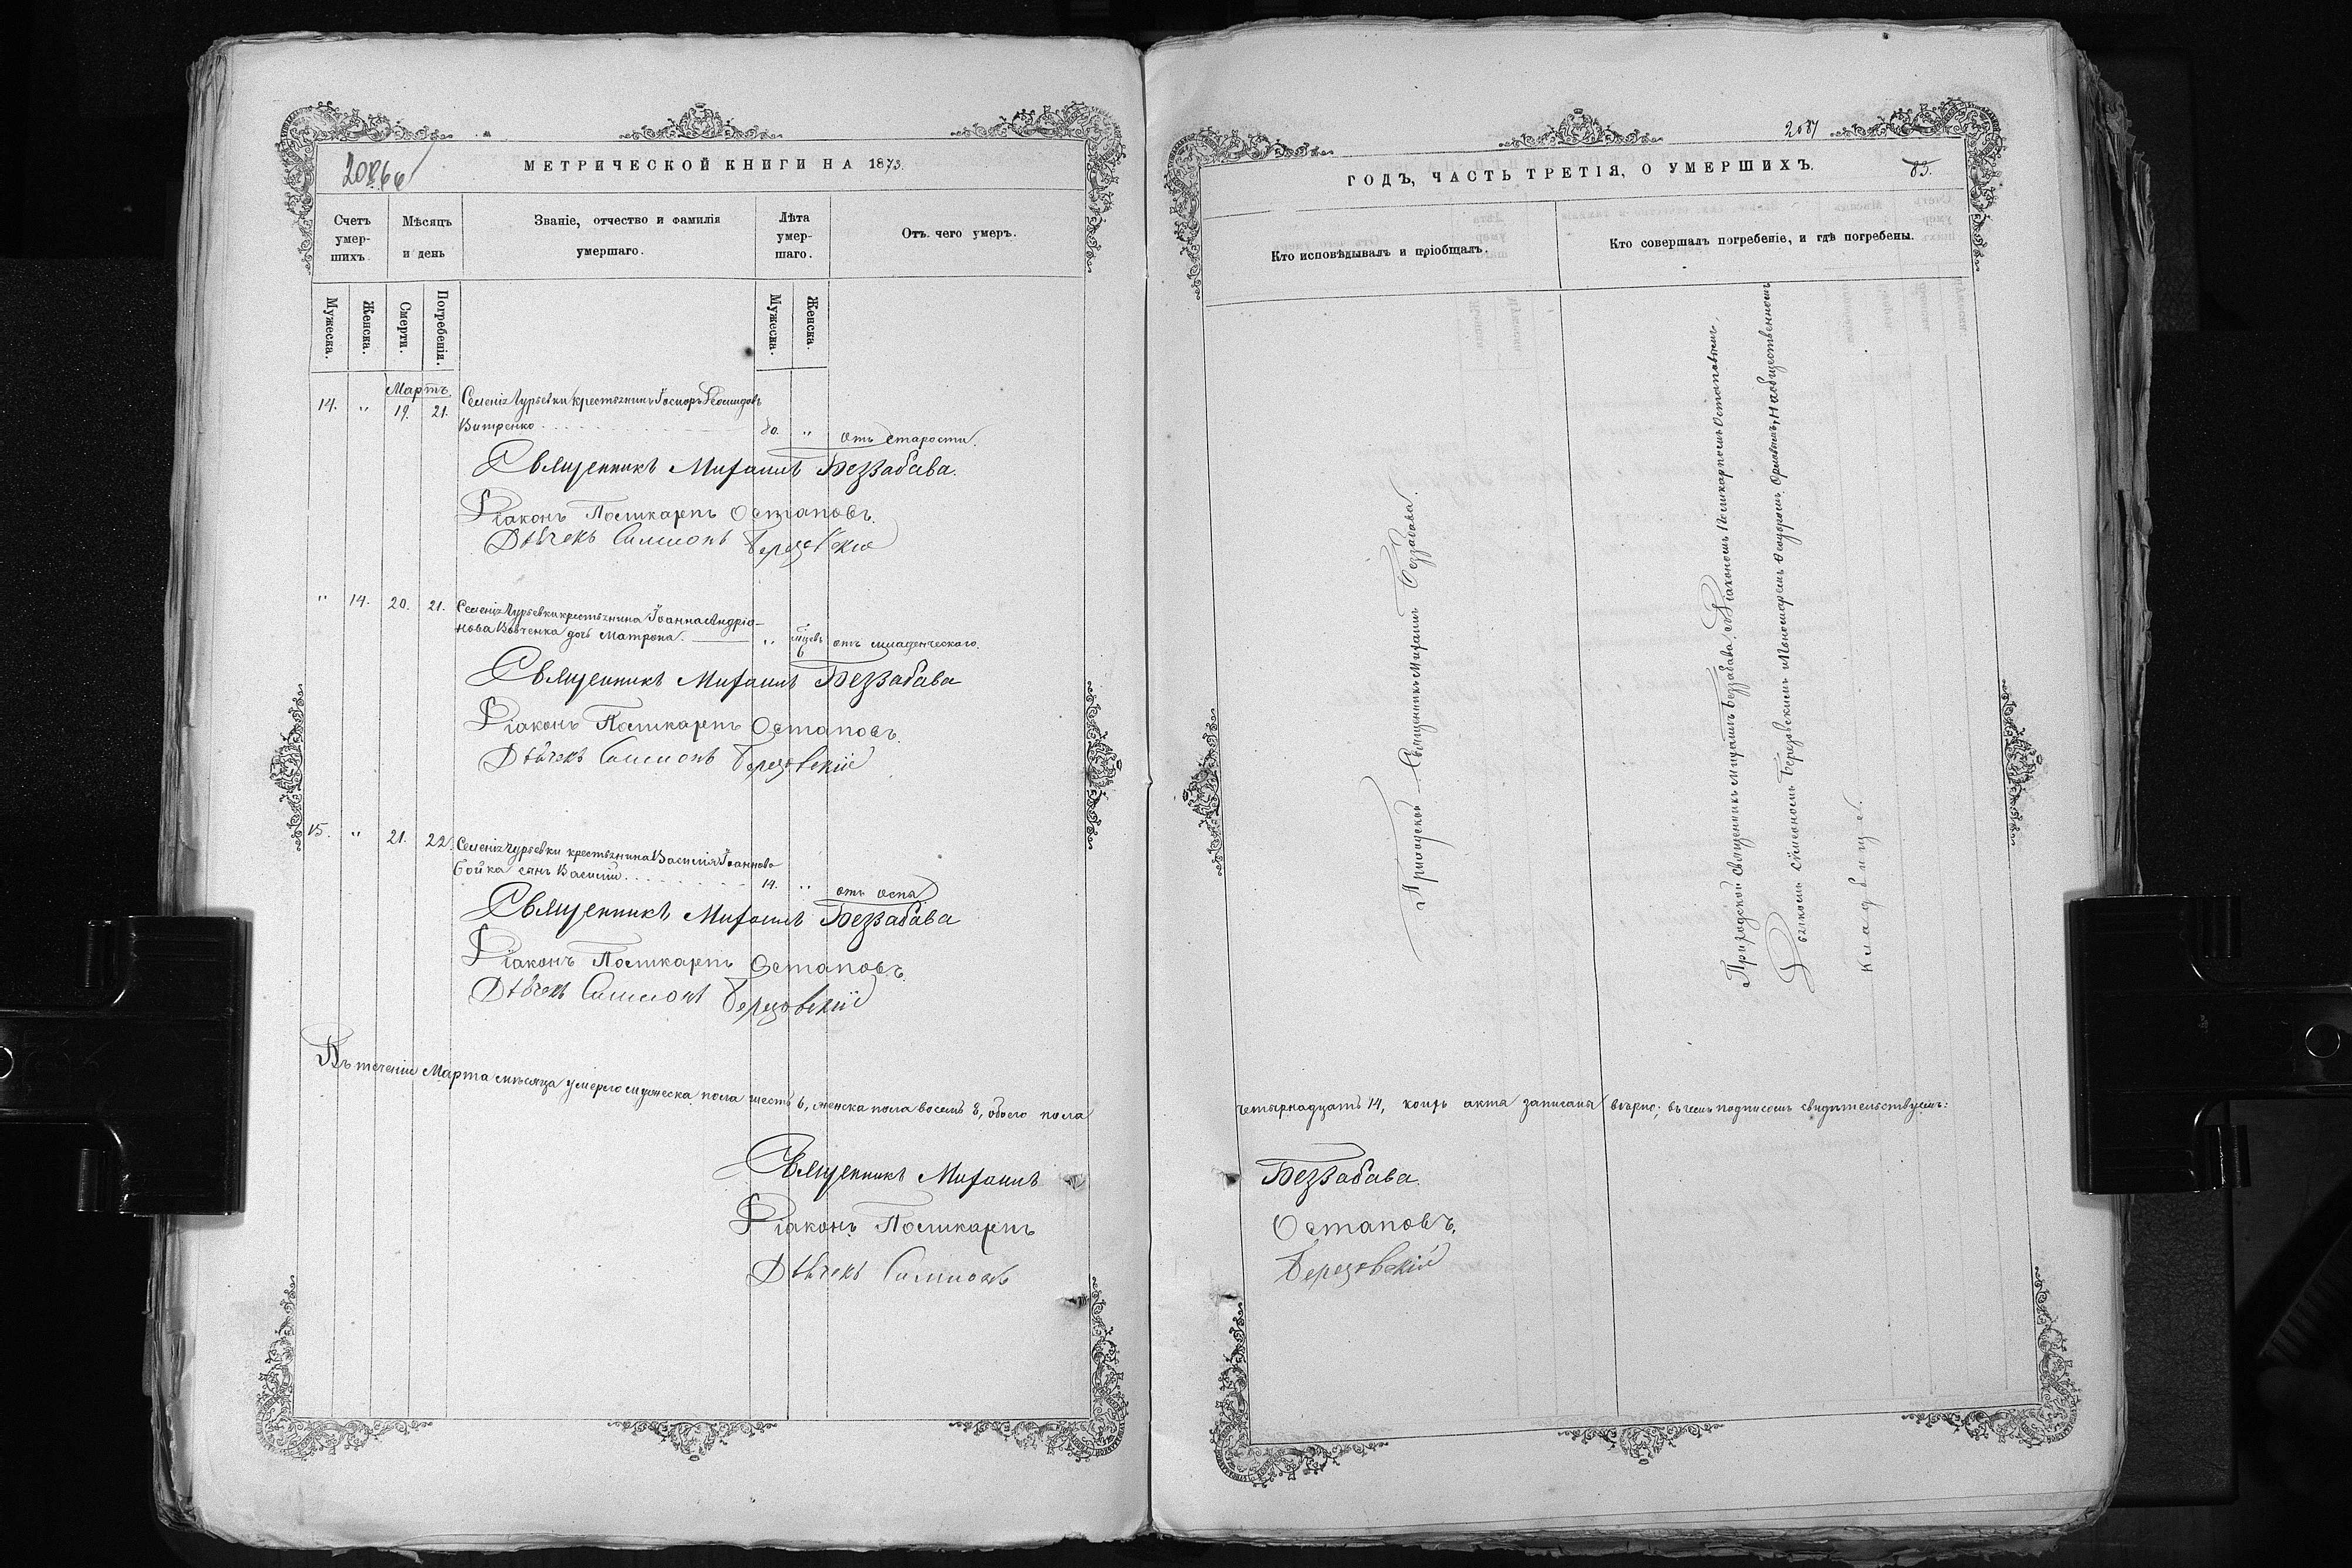 МЕТРИЧЕСКОЙ КНИГИ НА 1873.
Счетъ умер-шихъ.
Мѣсяцъ и день
Званіе, отчество и фамилія умершаго.
Лѣта умер-шаго.
Отъ чего умеръ.
Мужеска.
Женска.
Смерти.
Погребенія.
Мужеска.
Женска.
Мартъ
14. " 19. 21. Селенія Гурьевки крестьянинъ
Витренко 80. " отъ старости.
Священникъ Михаилъ Беззабава.
Діаконъ Поликарпъ Остаповъ.
Дьячекъ Симеонъ Березовскій
" 14. 20. 21. Селенія Гурьевки крестьянина Іоанна Андріа-
нова Вовченка дочь Матрона. " отъ младенческаго.
Священникъ Михаилъ Беззабава
Діаконъ Поликарпъ Остаповъ.
Дьячекъ Симеонъ Березовскій
15. " 21. 22. Селенія Гурьевки крестьянина Василія Іоаннова
Бойка сынъ Василій 14. " отъ оспы
Священникъ Михаилъ Беззабава
Діаконъ Поликарпъ Остаповъ.
Дьячекъ Симеонъ Березовскій
Въ теченіи Марта мѣсяца умерло мужеска пола шесть 6, женска пола восемь 8, обоего пола
Священникъ Михаилъ
Діаконъ Поликарпъ
Дьячекъ Симеонъ
2087
ГОДЪ, ЧАСТЬ ТРЕТІЯ, О УМЕРШИХЪ.
83.
Кто исповѣдывалъ и пріобщалъ.
Кто совершалъ погребеніе, и гдѣ погребены.
Приходской Священникъ Михаилъ Беззабава.
Приходской священникъ Михаилъ Беззабава съ Діакономъ Поликарпомъ Остаповымъ,
Дьячкомъ Симеономъ Березовскимъ и Пономаремъ Ѳеодоромъ На общественномъ
кладбищѣ.
четырнадцать 14, коихъ акты записаны вѣрно; въ чемъ подписомъ свидѣтельствуемъ:
Беззабава
Остаповъ.
Березовскій